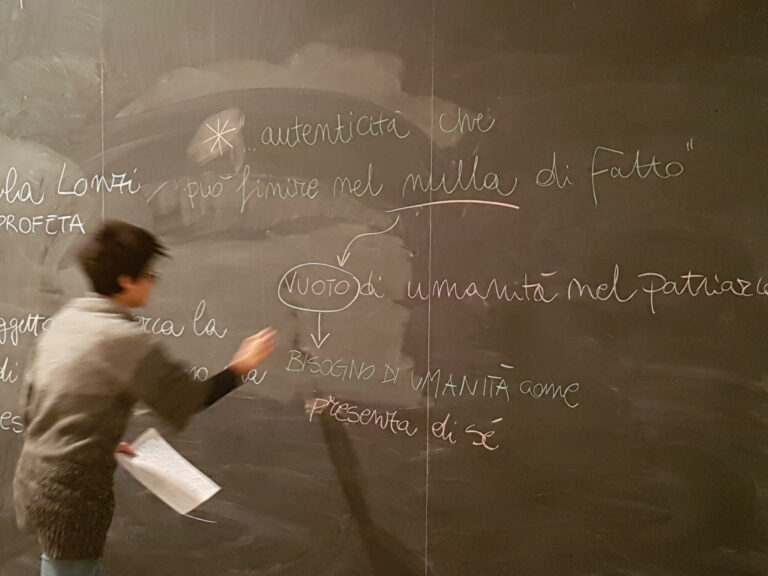 * "...autenticità che
la Lonzi
può finire nel nulla di fatto"
PROFETA
VUOTO di umanità nel patriarc
la
BISOGNO DI UMANITÀ come
di
presenza di sé